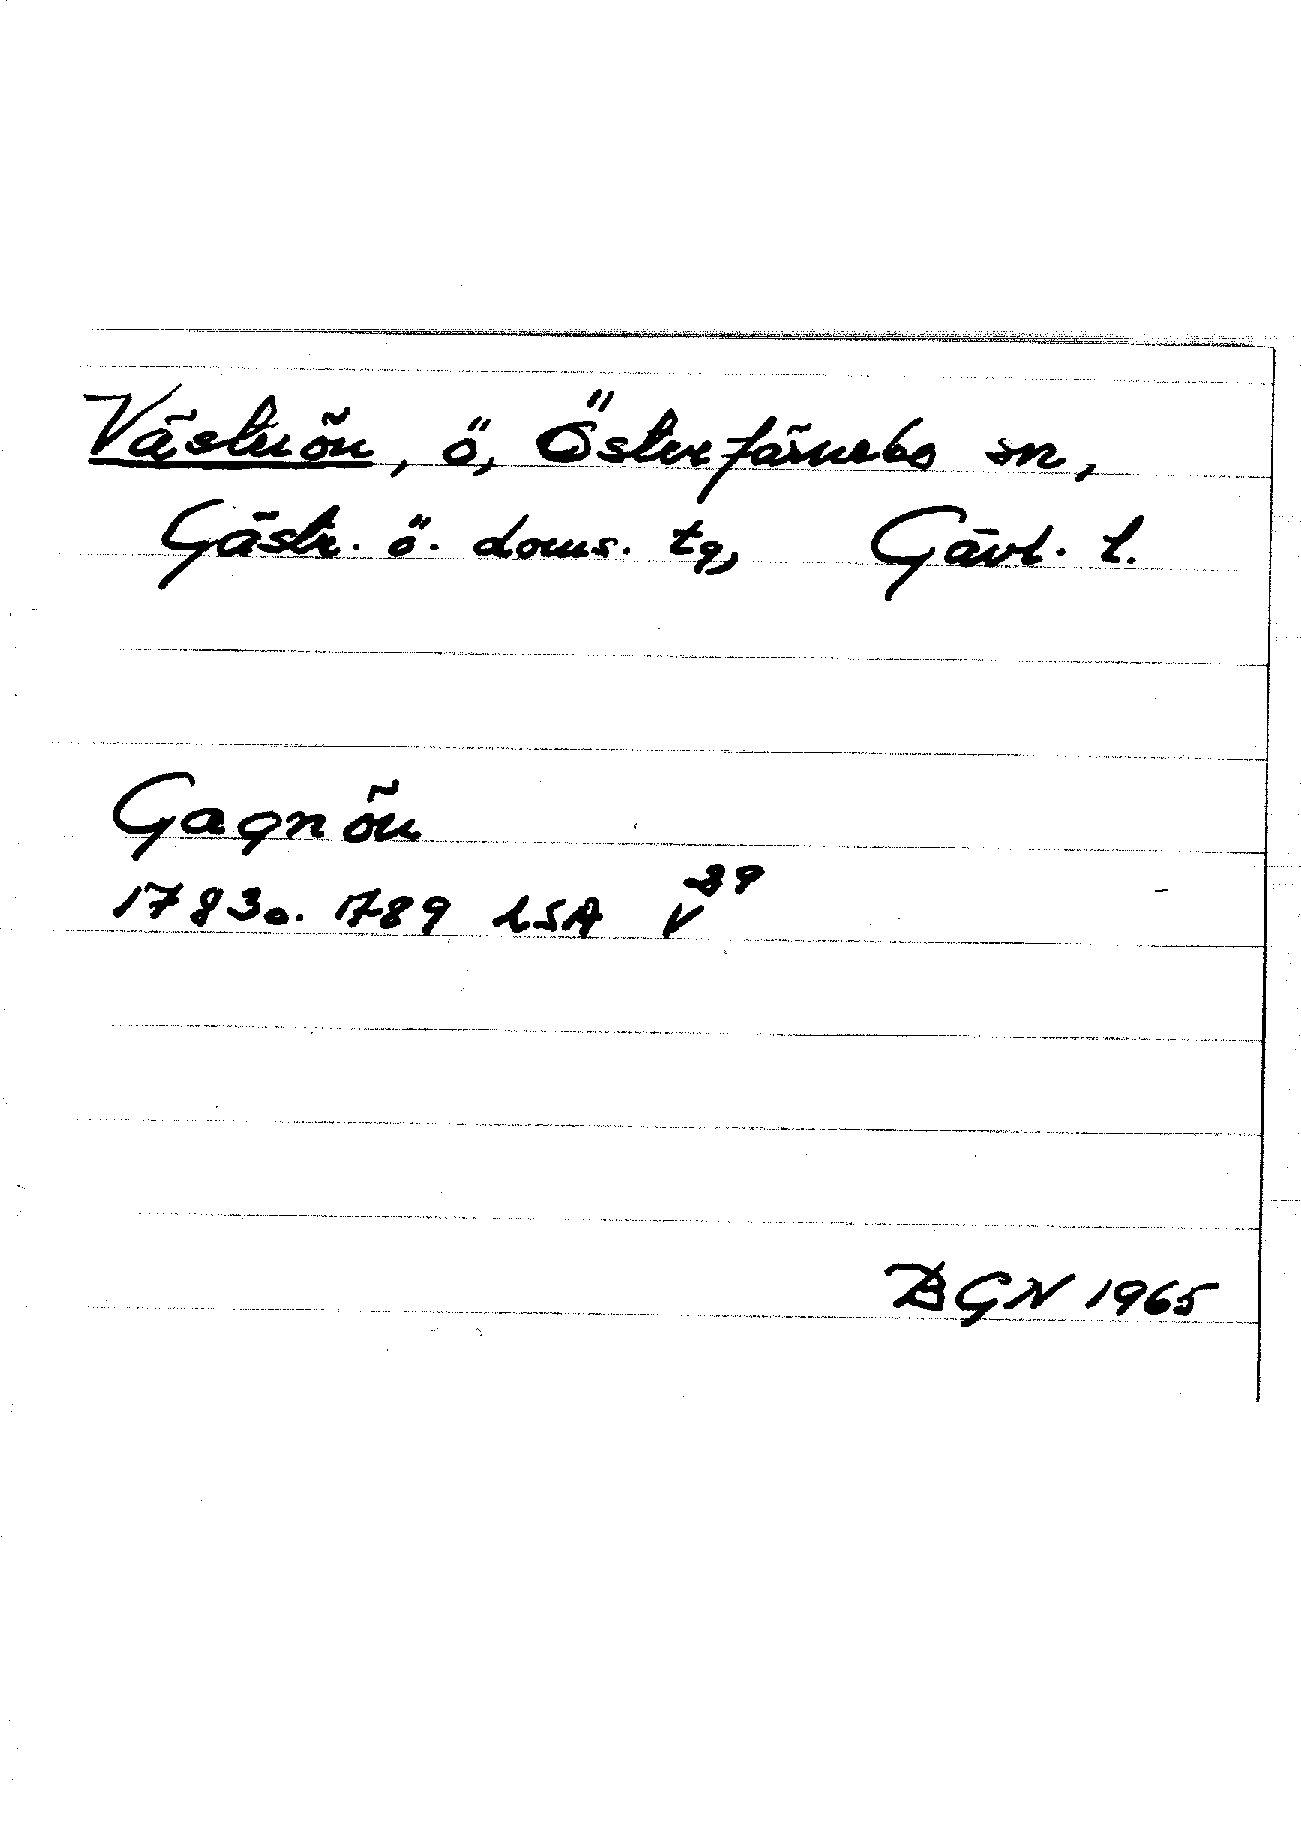 Västerön, ö, Österfärnebo sn,
Gästr. ö. doms. tg, Gävl. l.
Gagnön
1783 o. 1789 LSA V 39
DGN 1965